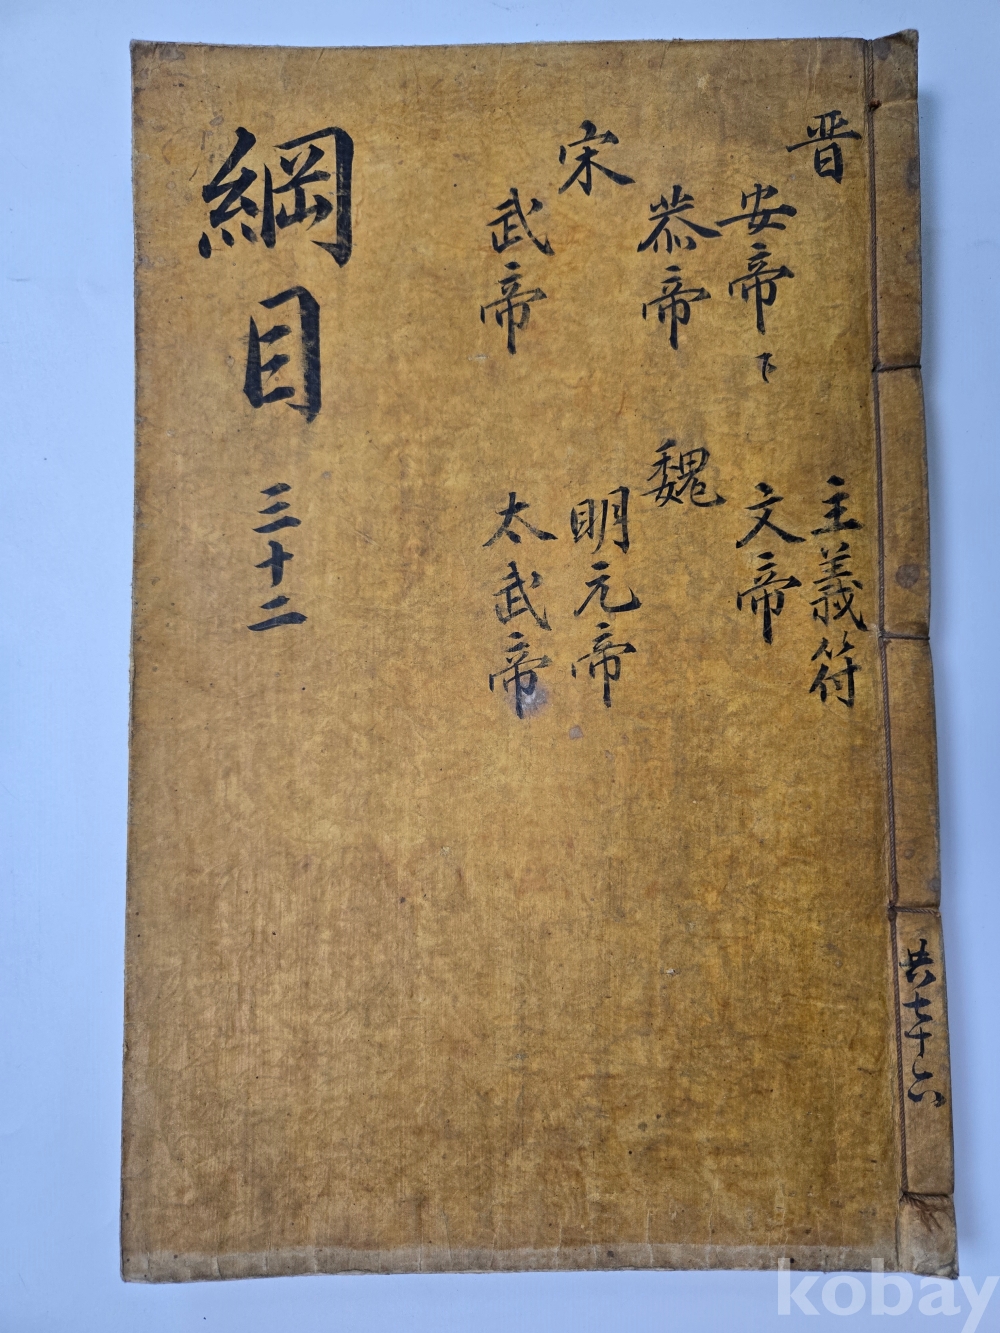 晋
安帝下
恭帝
宋
武帝
主義符
文帝
魏
明元帝
太武帝
綱目 三十二
共七十六
kobay